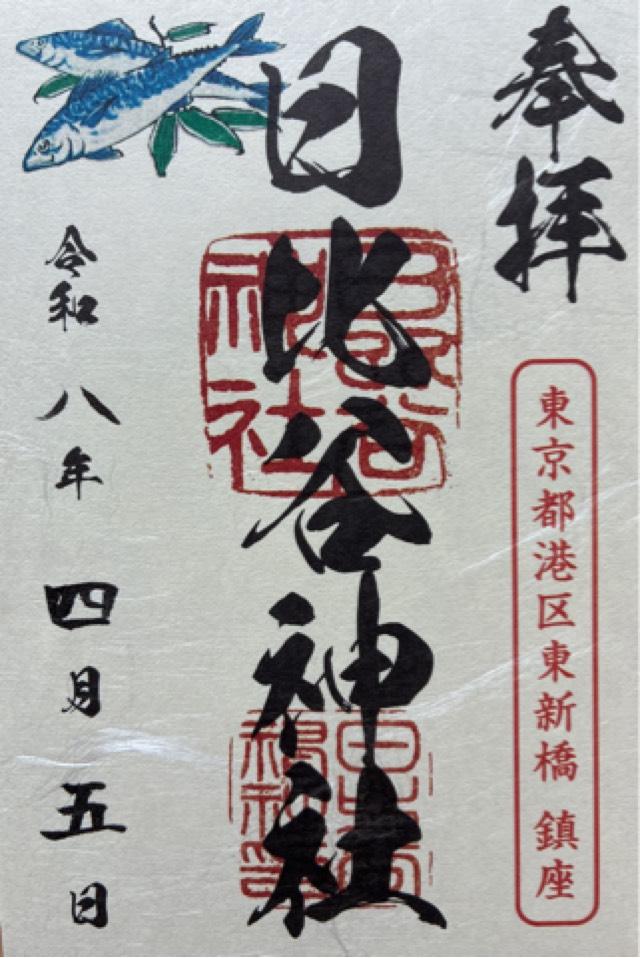 奉拝
東京都港区東新橋 鎮座
日比谷神社
令和八年四月五日